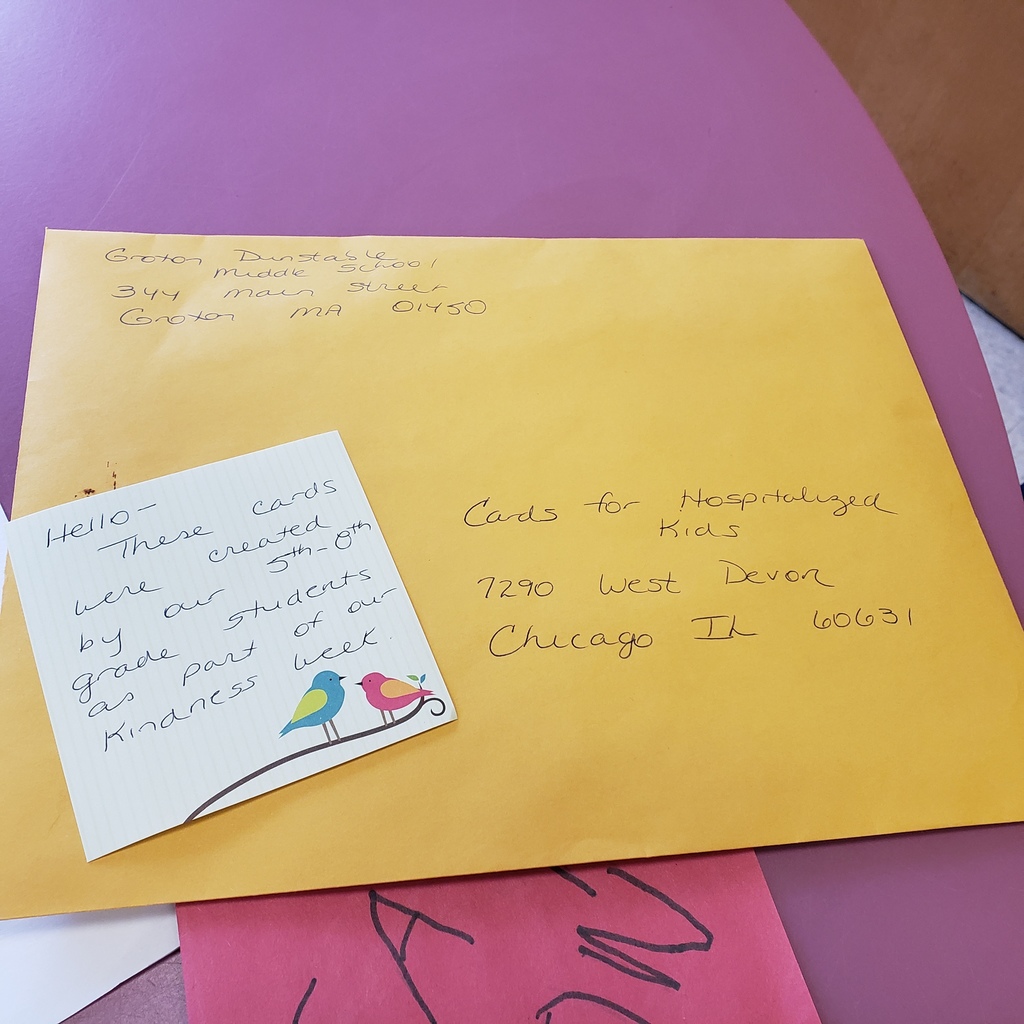 Groton Dunstable
Middle School
344 Main Street
Groton MA 01450
Hello-
These cards
were created
by our 5th-8th
grade students
as part of our
Kindness week.
Cards for Hospitalized
Kids
7290 West Devon
Chicago IL 60631